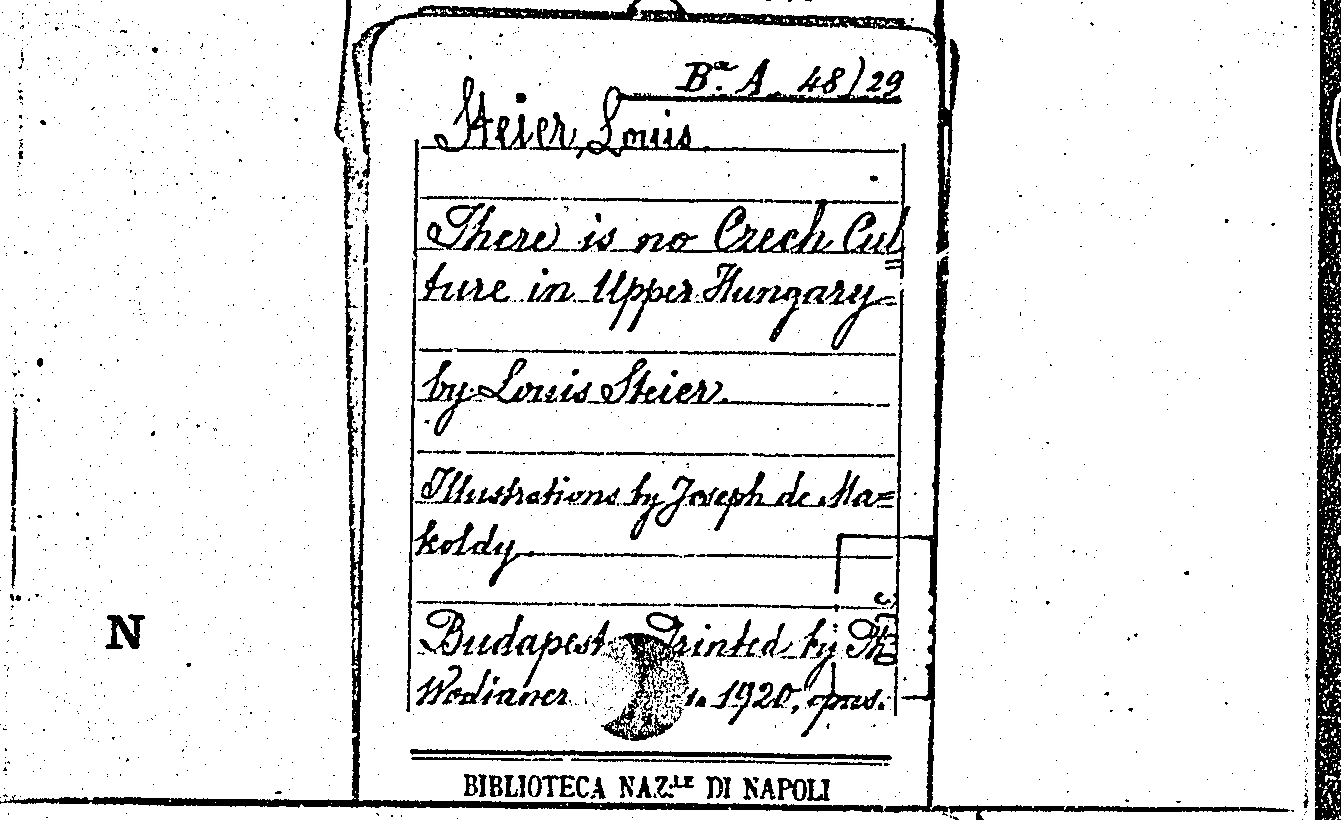 Bᵃ. A 48/29
Steier, Louis.
There is no Czech Cul=
ture in Upper Hungary=
by Louis Steier.
Illustrations by Joseph de Ma=
koldy.
Budapest Printed by Th
Wodianer 1920,
N
BIBLIOTECA NAZ.LE DI NAPOLI